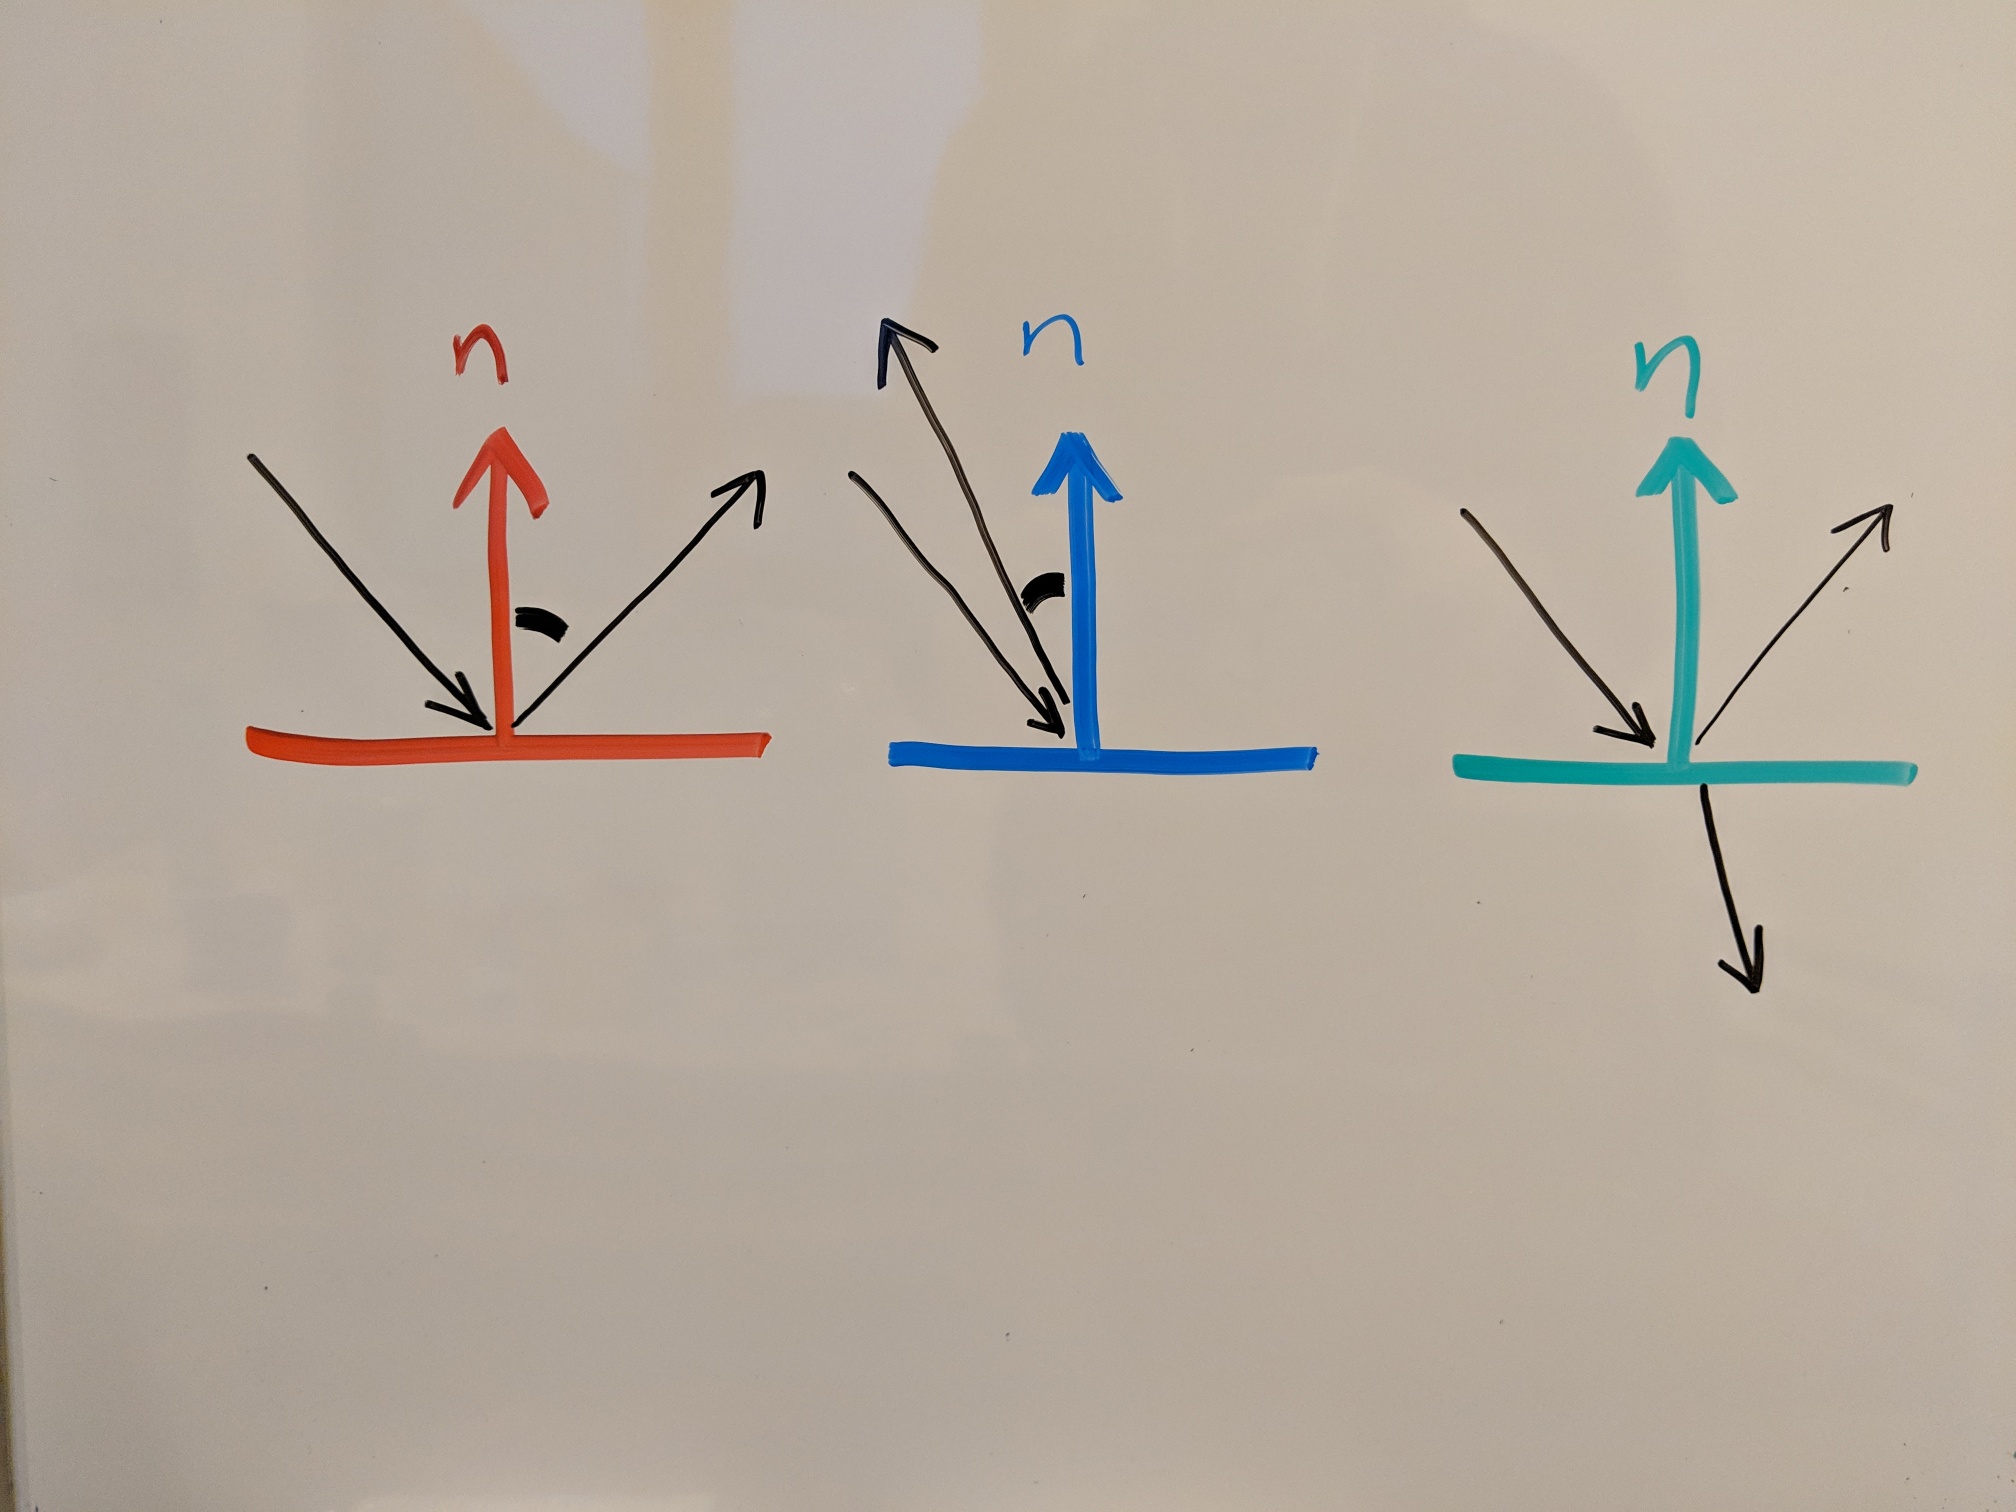 n n n